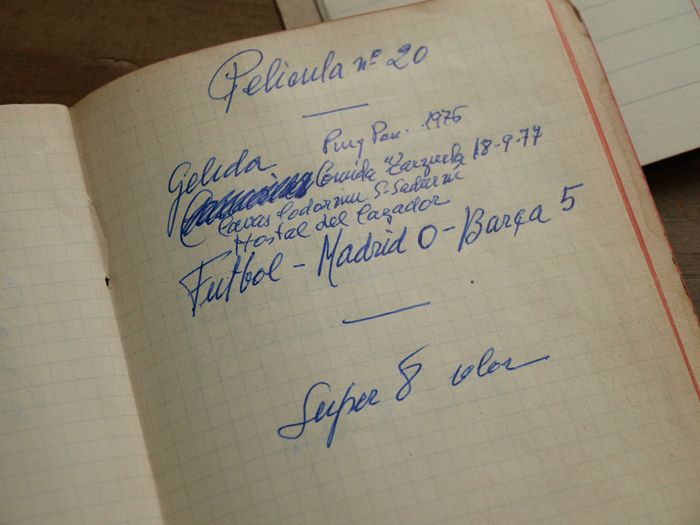 Pelicula nº 20
Gelida Puig Pau. 1976
Comida "Zarzuela 18-9-77
Cavas Codorniu S. Sadurní
Hostal del Cazador
Futbol - Madrid 0 - Barça 5
Super 8 color